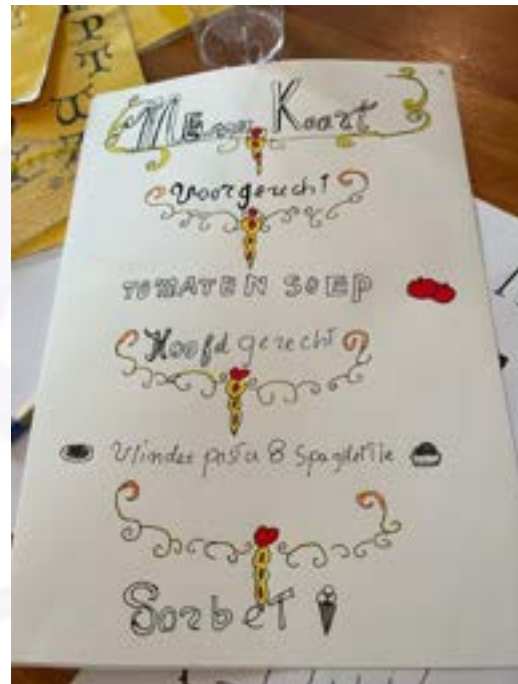 Menu Kaart
Voorgerecht
TOMATEN SOEP
Hoofdgerecht
Vlinder pasta & Spaghettie
Sorbet